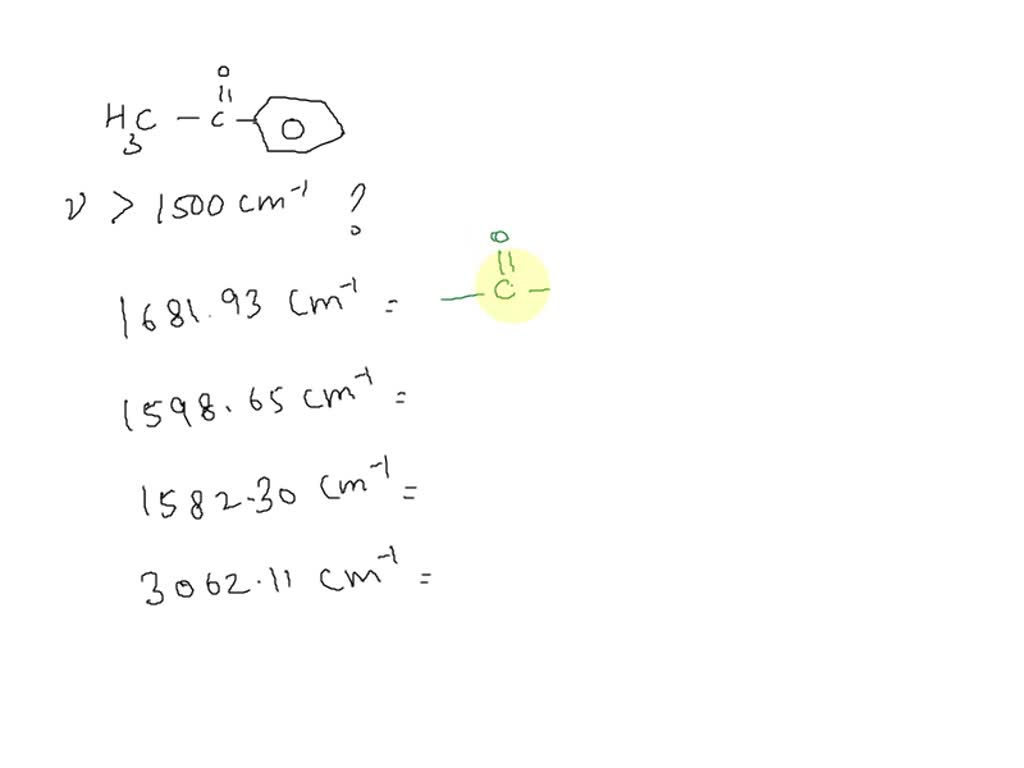 O
||
H3C – C –
ν > 1500 cm⁻¹ ?
O
||
1681.93 cm⁻¹ = – C –
1598.65 cm⁻¹ =
1582.30 cm⁻¹ =
3062.11 cm⁻¹ =